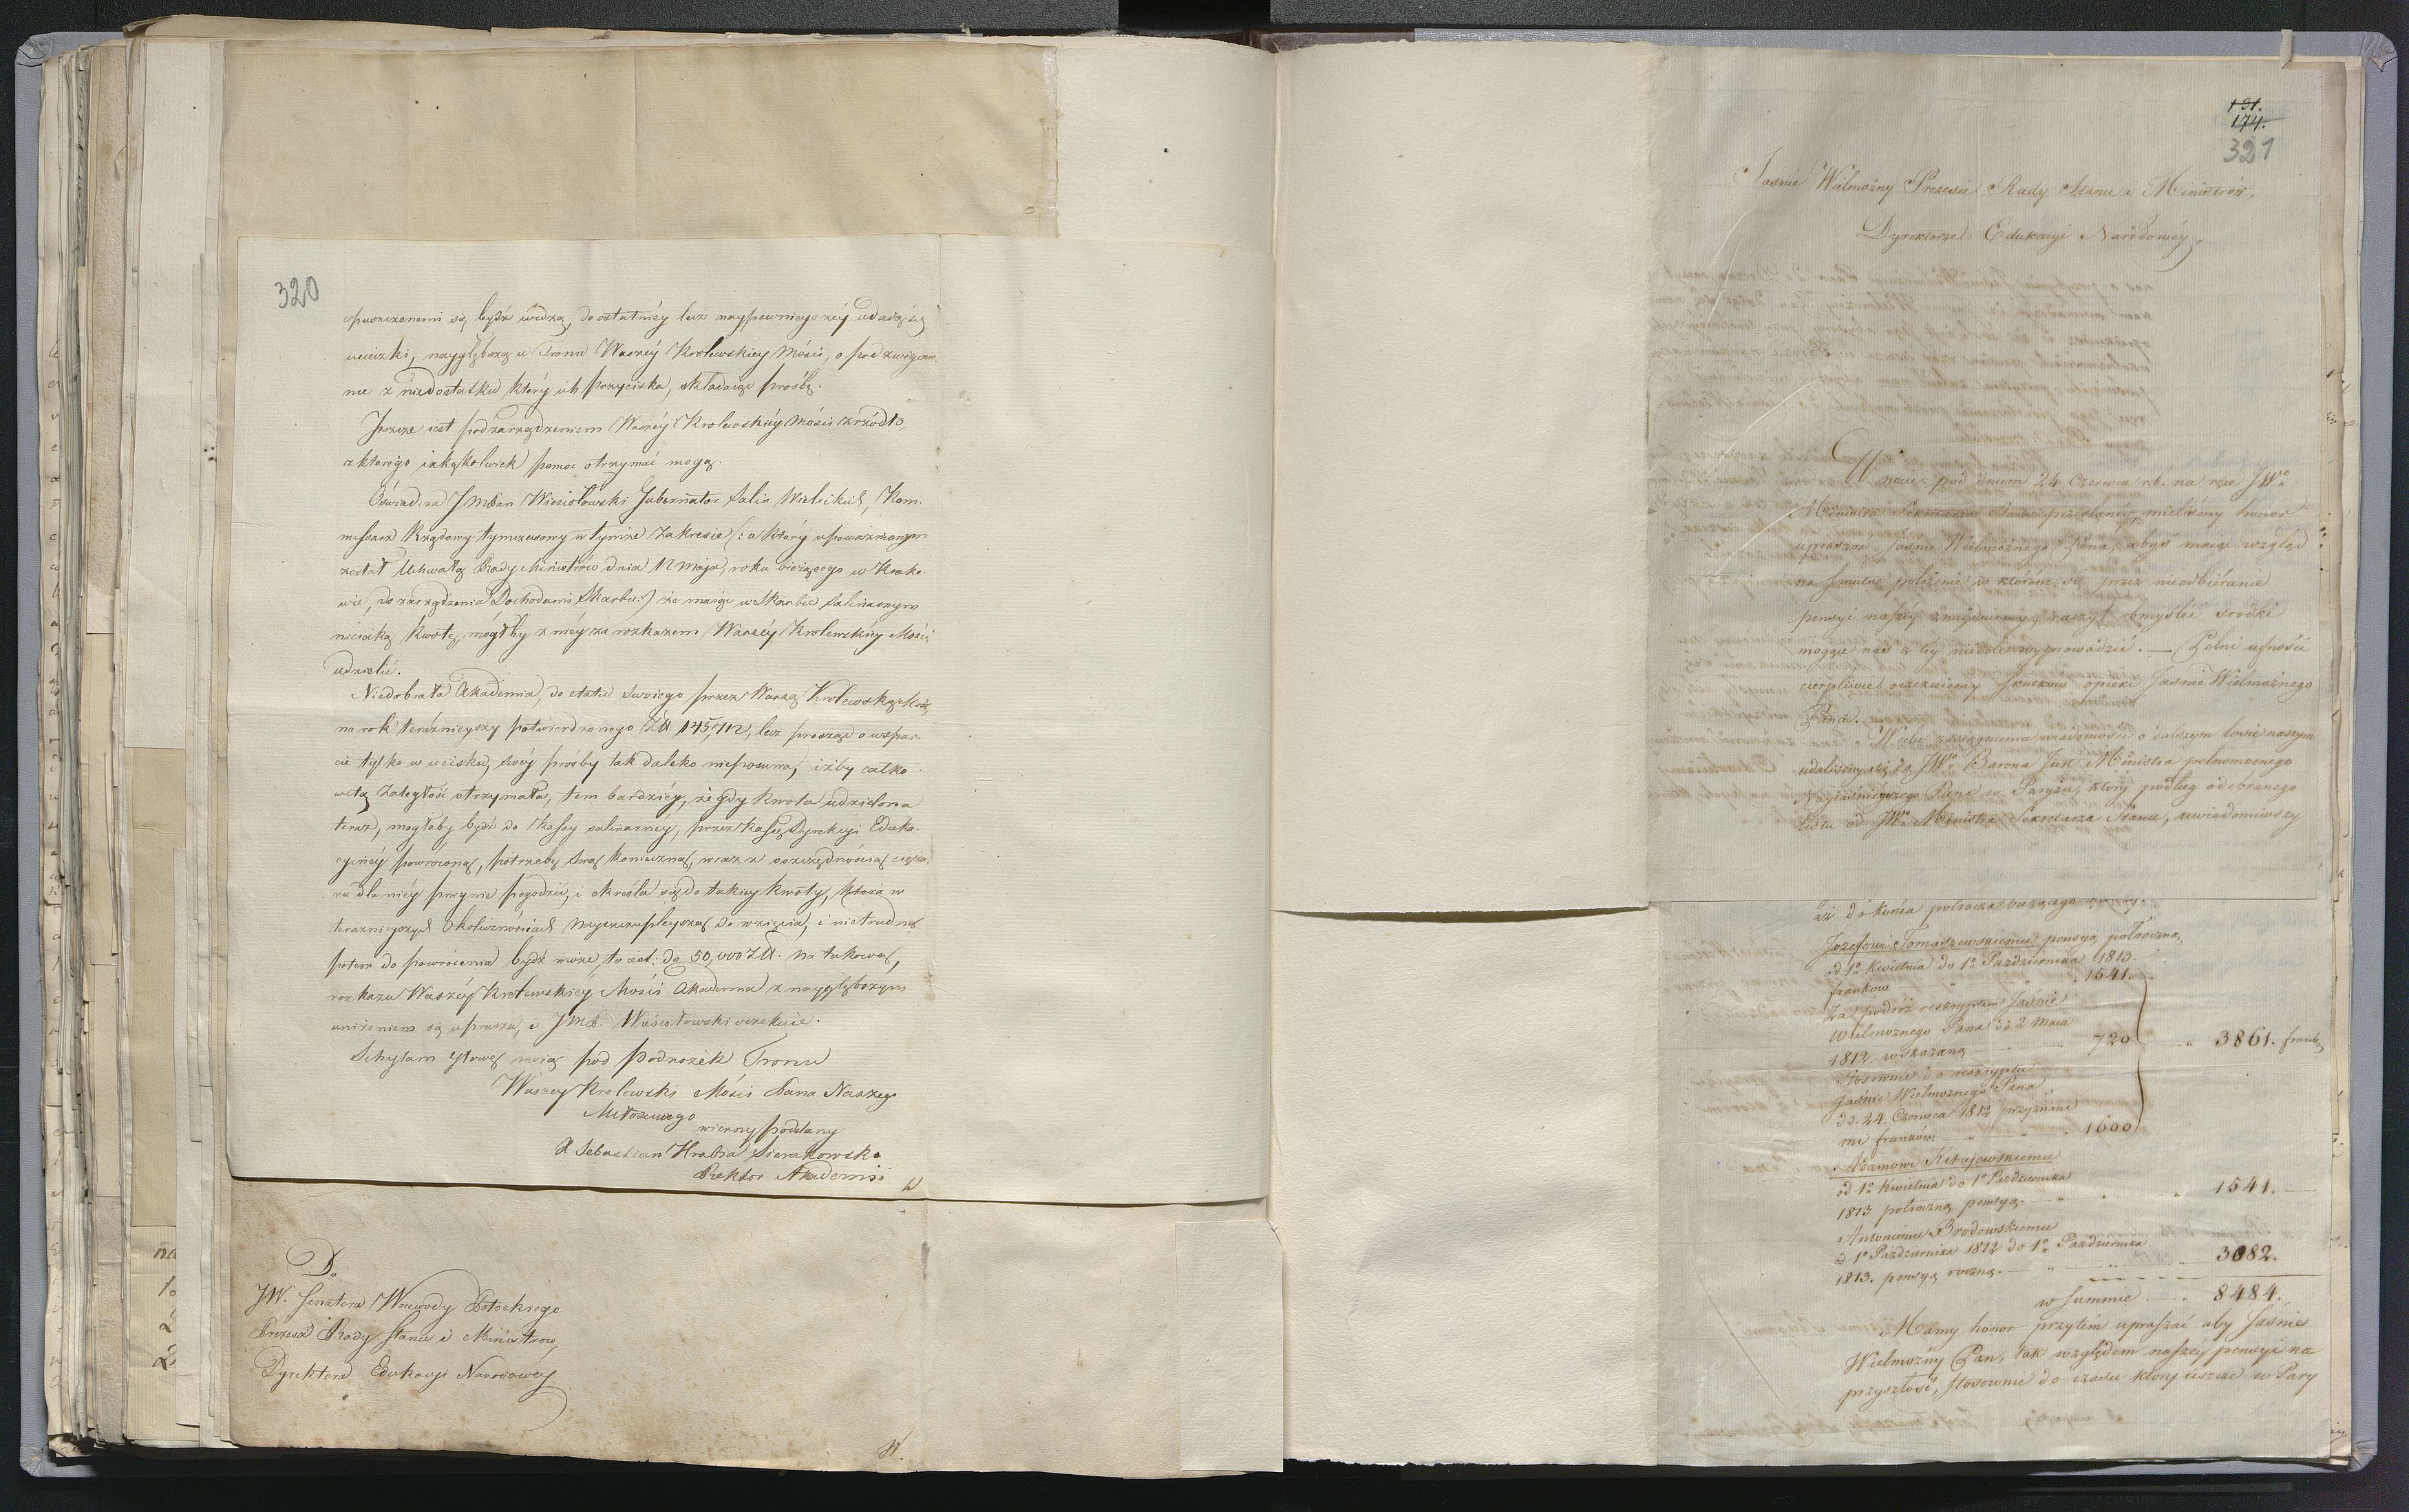 320
opuszczonemi się bydź widzą, do ostatniéy lecz naypewnieyszéy udadzą się
ucieczki, naygłębszą u Tronu Waszéy Krolewskiey Mósci, o podzwignie-
nie z niedostatku który ich przyciska, składaiąc prośbę.
Jeszcze iest pod zarządzeniem Waszéy Krolewskiéy Mósci zrzódło,
z ktorégo iakąkolwiek pomoc otrzymać mogą.
Oświadcza JmPan Wiesiołowski Gubernator Salin Wielickich, Kom-
missarz Rządowy tymczasowy w tymże Zakresie (: a który upoważnionym
został Uchwałą Rady Ministrów dnia 12 Maja, roku bieżącego w Krako-
wie, do zarządzenia Dochodami Skarbu:) że maiąc w Skarbie Salinarnym
nieiaką kwotę, mógłby z niéy za rozkazem Waszéy Krolewskiéy Mości
udzielić.
Niedobrała Akademia, do etatu swoiego przez Waszą Krolewską Mość,
na rok teraźnieyszy potwierdzonego Złł 145,712, lecz prosząc o wspar-
cie tylko w ucisku, swéy prośby tak daleko nieposuwa, iżby całko-
witą zaległość otrzymała, tem bardziéy, że gdy kwota udzielona
teraz, mogłaby bydź do Kassy salinarnéy, przez Kassę Dyrekcyi Eduka-
cyinéy powrocona, potrzebę swą konieczną, wraz z oszczędnością
dla niéy pragnie pogodzić, i określa się do takiey kwoty, ktora w
teraznieyszych okolicznościach nayszczupleyszą do wzięcia, i nietrudną
potem do powrócenia bydź może, to iest: do 50,000 Złł. na takową,
rozkazu Waszéy Krolewskiey Mości Akademia z naygłębszym
uniżeniem się uprasza, i JmP. Wiesiołowski oczekuie.
Schylam głowę moią pod podnożek Tronu
Waszey Krolewski Mósci Pana Naszego
Miłościwego
wierny poddany
X Sebastian Hrabia Sierakowski
Rektor Akademii
Do
JW. Senatora Woiewody Potockiego
Prezesa Rady Stanu i Ministrow,
Dyrektora Edukacyi Narodowey
191.
174.
321
Jaśnie Wielmożny Prezesie Rady Stanu i Ministrów,
Dyrektorze Edukacyi Narodowéy,
pod dniem 24 Czerwca r.b. na ręce JWo
Ministra Sekretarza Stanu przesłanéy, mieliśmy honor
upraszać Jaśnie Wielmożnego Pana, abyś maiąc wzgląd
na smutne położenie w którém są przez nieodbiéranie
pensyi naszéy znayduiemy, raczył obmyślić srodki
mogące nas z téy niedoli wyprowadzić. — Pełni ufności
cierpliwie oczekuiemy skutków opieki Jaśnie Wielmożnego
Pana.
W celu zasiągnienia wiadomości o dalszym losie naszym
udaliśmy się do JWo Barona Just Ministra pełnomocnego
Nayjaśnieyszego Pana w Paryżu, który podług odebranego
listu od JWo Ministra Sekretarza Stanu, uwiadomiwszy
aż do końca połrocza bieżącego
Jozefowi Tomaszewskiemu pensyą połroczną,
od 1o Kwietnia do 1o Pazdziernika 1813.
frankow 1541.
Za podróż reskryptem Jaśnie
Wielmożnego Pana dd 2 Maia
1812 wskazaną 720
Stosownie do reskryptu
Jaśnie Wielmożnego Pana
dd. 24. Czerwca 1812 przyznane
mi franków 1600
3861. frank
Adamowi Kitajewskiemu
od 1o Kwietnia do 1o Pazdziernika
1813 połroczną pensyą. 1541.
Antoniemu Brodowskiemu
od 1o Pazdziernika 1812 do 1o Pazdziernika
1813. pensyą roczną. 3082.
w summie 8484.
Mamy honor przytém upraszać aby Jaśnie
Wielmożny Pan, tak względem naszéy pensyi na
przyszłość, stosownie do czasu który ieszcze w Pary